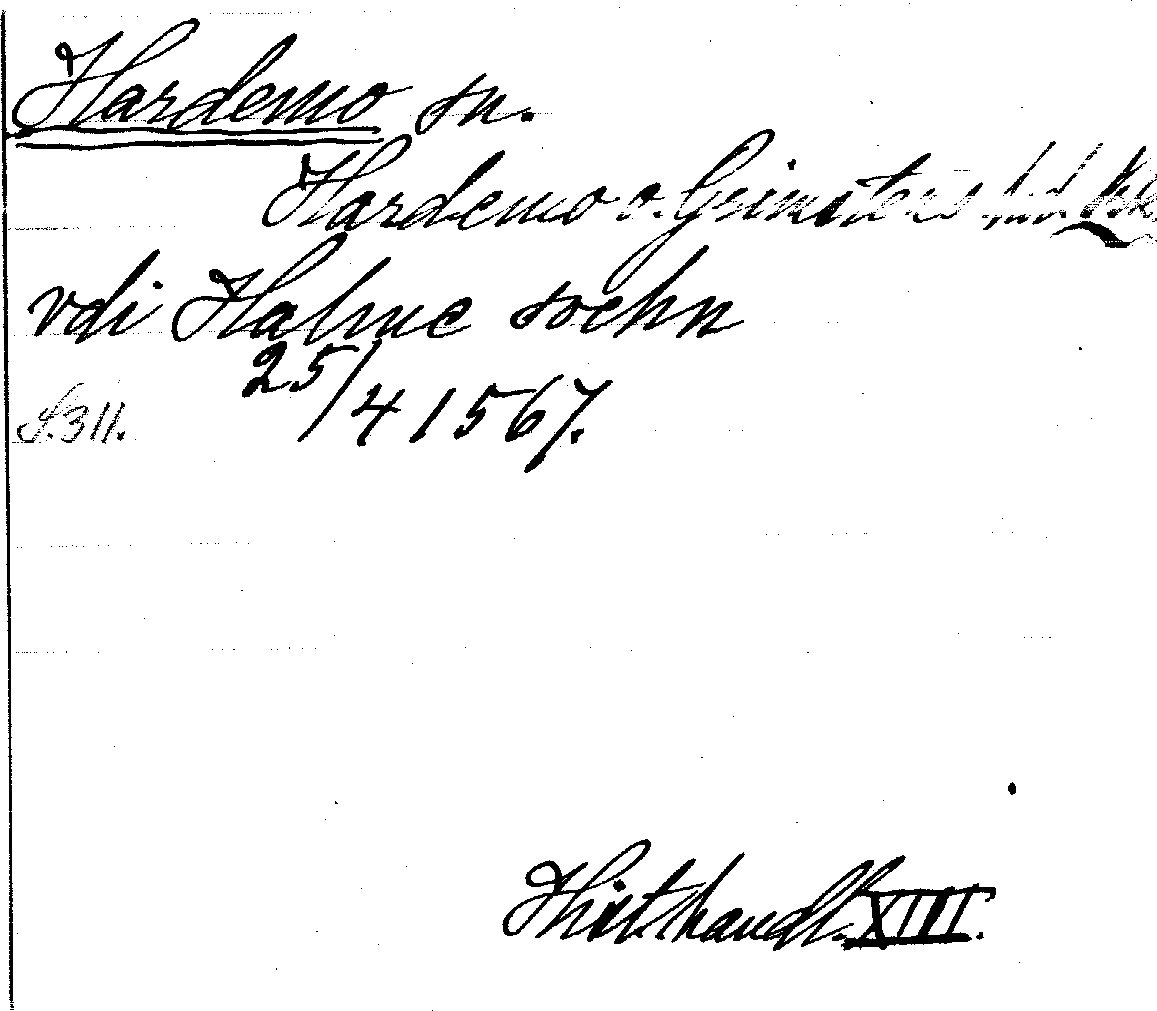 Hardemo sn.
Hardemo o. Grimstens hd.
vdi Halme sochn
25/4 1567.
S. 311.
Hist. handl. XIII.